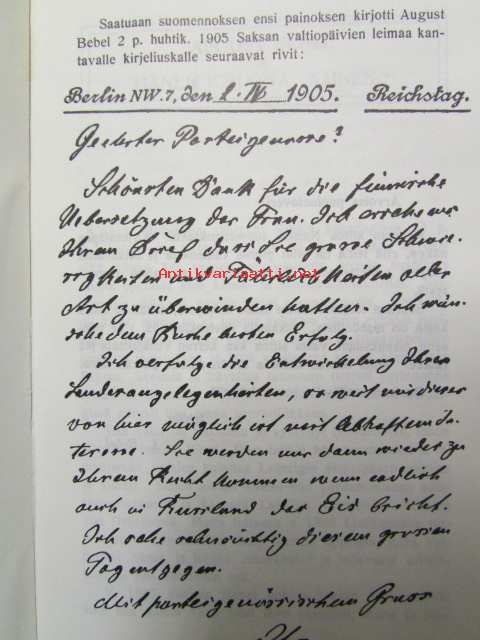 Saatuaan suomennoksen ensi painoksen kirjotti August
Bebel 2 p. huhtik. 1905 Saksan valtiopäivien leimaa kan-
tavalle kirjeliuskalle seuraavat rivit:
Berlin NW. 7, den 2. IV 1905. Reichstag.
Geehrter Parteigenosse!
Schönsten Dank für die finnische
Uebersetzung der Frau. Ich ersehe aus
Ihrem Brief dass Sie grosse Schwie-
rigkeiten und Widerwärtigkeiten aller
Antikvariaatti.net
Art zu überwinden hatten. Ich wün-
sche dem Buche besten Erfolg.
Ich verfolge die Entwickelung Ihrer
Landesangelegenheiten, so weit mir dieses
von hier möglich ist mit lebhaftem In-
teresse. Sie werden nur dann wieder zu
Ihrem Recht kommen wenn endlich
auch in Russland das Eis bricht.
Ich sehe sehnsüchtig diesem grossen
Tag entgegen.
Mit parteigenössischem Gruss